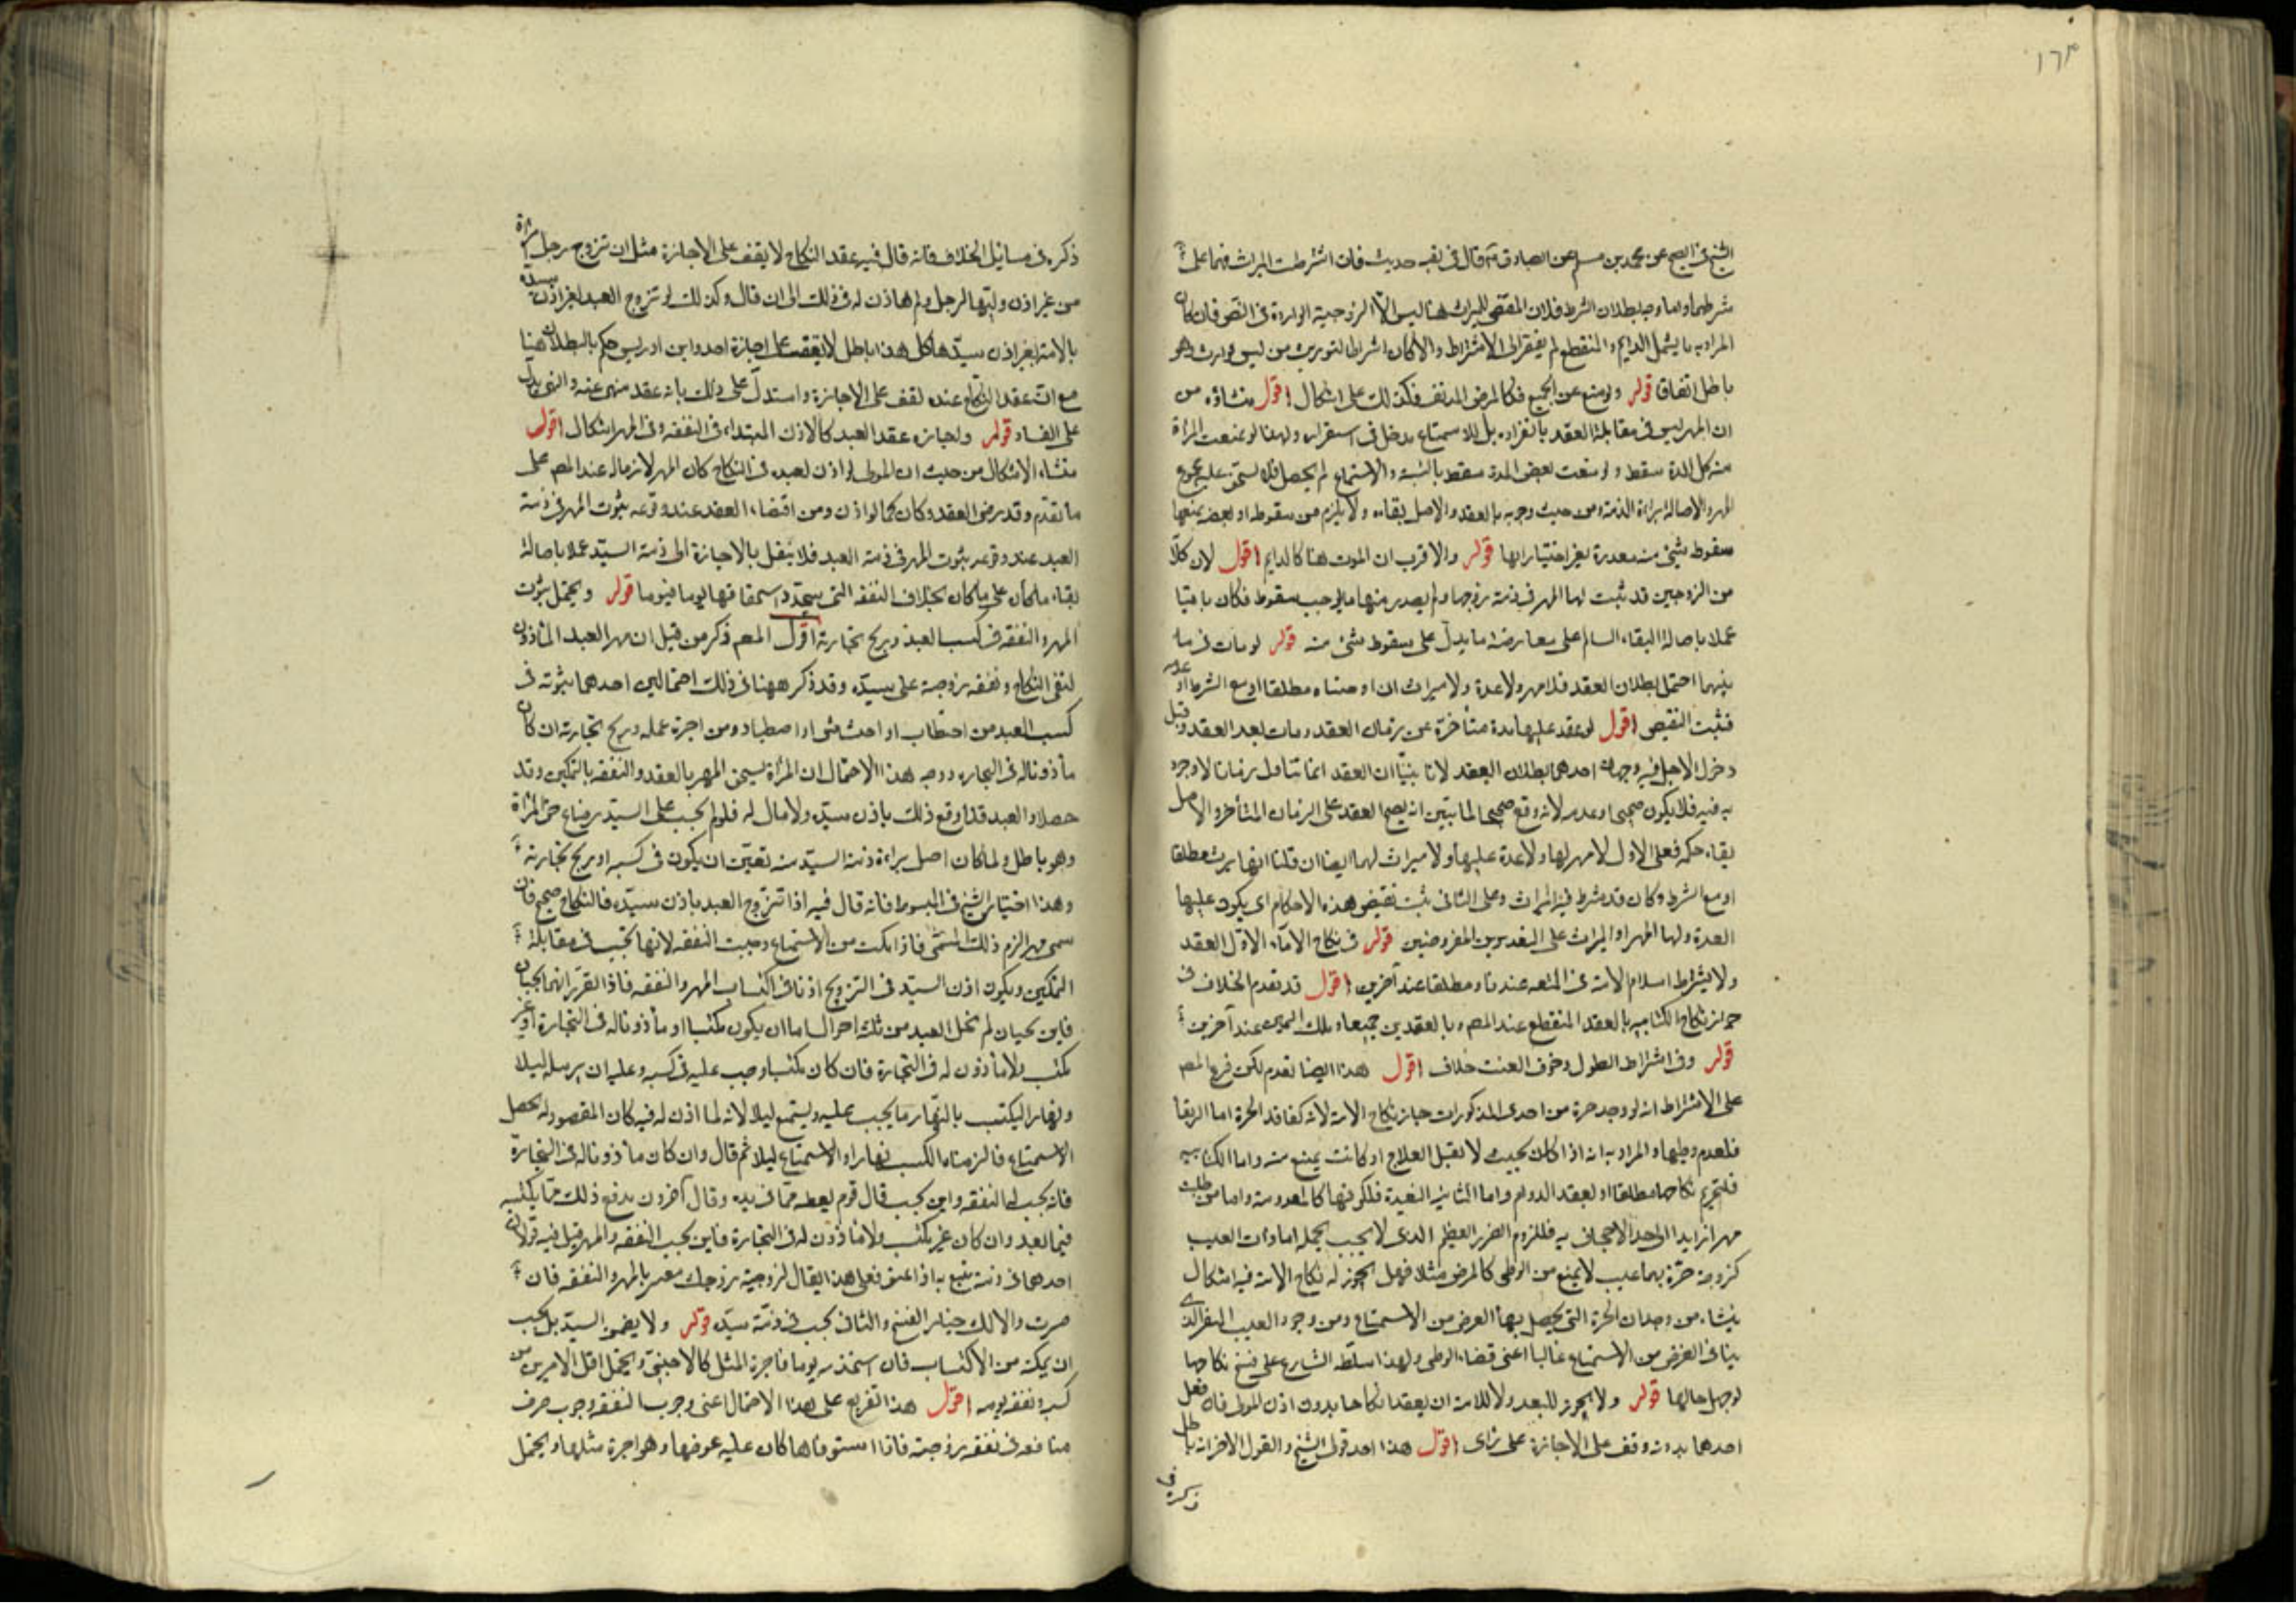 ١٦٣
الشيخ في الصحيح عن محمد بن مسلم عن الصادق ع قال في بقية حديث فان اشترطت الميراث فهما على
شرطهما واما وجه بطلان الشرط فلان المقتضي للميراث هنا ليس الا الزوجية الواردة في النص فان كان
المراد به ما يشمل الدايم والمنقطع لم يفتقر الى الاشتراط والا كان اشتراطا لتوريث من ليس بوارث وهو
باطل اتفاقا قوله ولو منع عن الجميع فكالمرض المدنف فكذلك على اشكال اقول منشاؤه من
ان المهر ليس في مقابلة العقد بانفراده بل للاستمتاع مدخل في استقراره ولهذا لو منعت المرأة
منه كل المدة سقط ولو منعت بعض المدة سقط بالنسبة والاستمتاع لم يحصل فلا تستحق عليه جميع
المهر والاصالة براءة الذمة ومن حيث وجوبه بالعقد والاصل بقاءه ولا يلزم من سقوطه او بعضه بمنعها
سقوط شيء منه بعذره بغير اختيارها قوله والاقرب ان الموت هنا كالدايم اقول لان كلا
من الزوجين قد ثبت لها المهر في ذمة زوجها ولم يصدر منها ما يوجب سقوطه فكان باقيا
عملا باصالة البقاء السالم على معارضة ما يدل على سقوط شيء منه قوله لو مات في ما
بينهما احتمل بطلان العقد فلا مهر ولا عدة ولا ميراث ان اوجبناه مطلقا او مع الشرط او عدمه
فثبت النقيض اقول لو عقد عليها مدة متأخرة عن زمان العقد ومات بعد العقد وقبل
دخول الاجل فيه وجهان احدهما بطلان العقد لانا بينا ان العقد انما تناول زمانا لا وجود
به فيه فلا يكون صحيحا وعدمه لانه وقع صحيحا لما تبين انه يصح العقد على الزمان المتأخر والاصل
بقاء حكمه فعلى الاول لا مهر لها ولا عدة عليها ولا ميراث لها ايضا ان قلنا انها يرث مطلقا
او مع الشرط وكان قد شرط فيه الميراث وعلى الثاني يثبت نقيض هذه الاحكام اي يكون عليها
العدة ولها المهر او الميراث على التقديرين المفروضين قوله في نكاح الاماء الاول العقد
ولا يشترط اسلام الامة في المتعة عندنا ومطلقا عند آخرين اقول قد تقدم الخلاف في
جواز نكاح الكتابية بالعقد المنقطع عند المص وبالعقدين جميعا وملك اليمين عند آخرين
قوله وفي اشتراط الطول وخوف العنت خلاف اقول هذا ايضا تقدم لكن فرع المص
على الاشتراط انه لو وجد حرة من احدى المذكورات جاز نكاح الامة لانه كفاقد الحرة اما الرتقا
فلعدم وطيها والمراد به انه اذا كان بحيث لا تقبل العلاج او كانت يمنع منه واما الكتابيه
فلتحريم نكاحها مطلقا او بعقد الدوام واما الثانية البعيدة فلكونها كالمعدومة واما من طلبت
مهرا زايدا الى حد الاجحاف به فللزوم الضرر العظيم الذي لا يجب تحمله اما ذات العيب
كزوجة حرة بها عيب لا يمنع من الوطي كالمرض مثلا فهل يجوز له نكاح الامة فيه اشكال
ينشاء من وجدان الحرة التي يحصل بها الغرض من الاستمتاع ومن وجود العيب المنفر الذي
ينافي الغرض من الاستمتاع غالبا اعني قضاء الوطي ولهذا سلطه الشارع على فسخ نكاحها
لو جهل حالها قوله ولا يجوز للعبد ولا للامة ان يعقدا نكاحا بدون اذن المولى فان فعل
احدهما بدونه وقف على الاجازة على راى اقول هذا احد قولي الشيخ والقول الاخر انه باطل
ذكره في
ذكره في مسايل الخلاف فانه قال فيه عقد النكاح لا يقف على الاجازة مثل ان تزوج رجل امرأة
من غير اذن وليها لرجل ولم ياذن له في ذلك الى ان قال وكذلك لو تزوج العبد بغير اذن سيده
بالامة بغير اذن سيدها كل هذا باطل لا يقف على اجازة احد وابن ادريس حكم بالبطلان هنا
مع ان عقد النكاح عنده يقف على الاجازة واستدل على ذلك بانه عقد منهى عنه والنهي يدل
على الفساد قوله واجازة عقد العبد كالاذن المبتداء في النفقة وفي المهر اشكال اقول
منشاء الاشكال من حيث ان المولى لو اذن لعبده في النكاح كان المهر لازما له عند المص على
ما تقدم وقد رضي العقد وكان كما لو اذن ومن اقتضاء العقد عند وقوعه ثبوت المهر في ذمة
العبد عند وقوعه بثبوت المهر في ذمة العبد فلا ينتقل بالاجازة الى ذمة السيد عملا باصالة
بقاء ما كان على ما كان بخلاف النفقة التي يتجدد استحقاقها يوما فيوما قوله ويحتمل ثبوت
المهر والنفقة في كسب العبد وربح تجارته اقول المص ذكر من قبل ان مهر العبد الماذون
له في النكاح ونفقة زوجته على سيده وقد ذكر ههنا في ذلك احتمالين احدهما ثبوته في
كسب العبد من احتطاب او احتشاش او اصطياد ومن اجرة عمله وربح تجارته ان كان
مأذونا له في التجارة ووجه هذا الاحتمال ان المرأة يستحق المهر بالعقد والنفقة بالتمكين وقد
حصلا والعبد قد اوقع ذلك باذن سيده ولا مال له فلو لم يجب على السيد لضاع حق المرأة
وهو باطل ولما كان اصل براءة ذمة السيد منه تعين ان يكون في كسبه او ربح تجارته
وهذا اختيار الشيخ في المبسوط فانه قال فيه اذا تزوج العبد باذن سيده فالنكاح صحيح فان
سمى مهرا لزم ذلك المسمى فاذا مكنت من الاستمتاع وجبت النفقة لانها تجب في مقابلة
التمكين ويكون اذن السيد في التزويج اذنا في اكتساب المهر والنفقة فاذا تقرر انهما يجبان
فاين يجبان لم يخل العبد من ثلثة احوال اما ان يكون مكتسبا او مأذونا له في التجارة او غير
مكتسب ولا ماذون له في التجارة فان كان مكتسبا وجب عليه في كسبه وعليه ان يرسله ليلا
ونهارا ليكتسب بالنهار ما يجب عليه ويستمتع ليلا لانه لما اذن له فيه كان المقصود له تحصل
الاستمتاع فالزمناه الكسب نهارا والاستمتاع ليلا ثم قال وان كان مأذونا له في التجارة
فانه يجب لها النفقة واين يجب قال قوم يعطيه مما في يده وقال آخرون يدفع ذلك مما يكتسبه
فيما بعد وان كان غير مكتسب ولا ماذون له في التجارة فاين يجب النفقة والمهر قيل فيه قولان
احدهما في ذمته يتبع به اذا اعتق فعلى هذا يقال لزوجته زوجك معسر بالمهر والنفقة فان
صبرت والا لك خيار الفسخ والثاني يجب في ذمة سيده قوله ولا يضمن السيد بل يجب
ان يمكنه من الاكتساب فان استخدمه يوما فاجرة المثل كالاجنبي ويحتمل اقل الامرين من
كسبه ونفقة يومه اقول هذا تفريع على هذا الاحتمال اعني وجوب النفقة وجوب صرف
منافعه في نفقة زوجته فاذا استوفاها كان عليه عوضها وهو اجرة مثلها ويحتمل